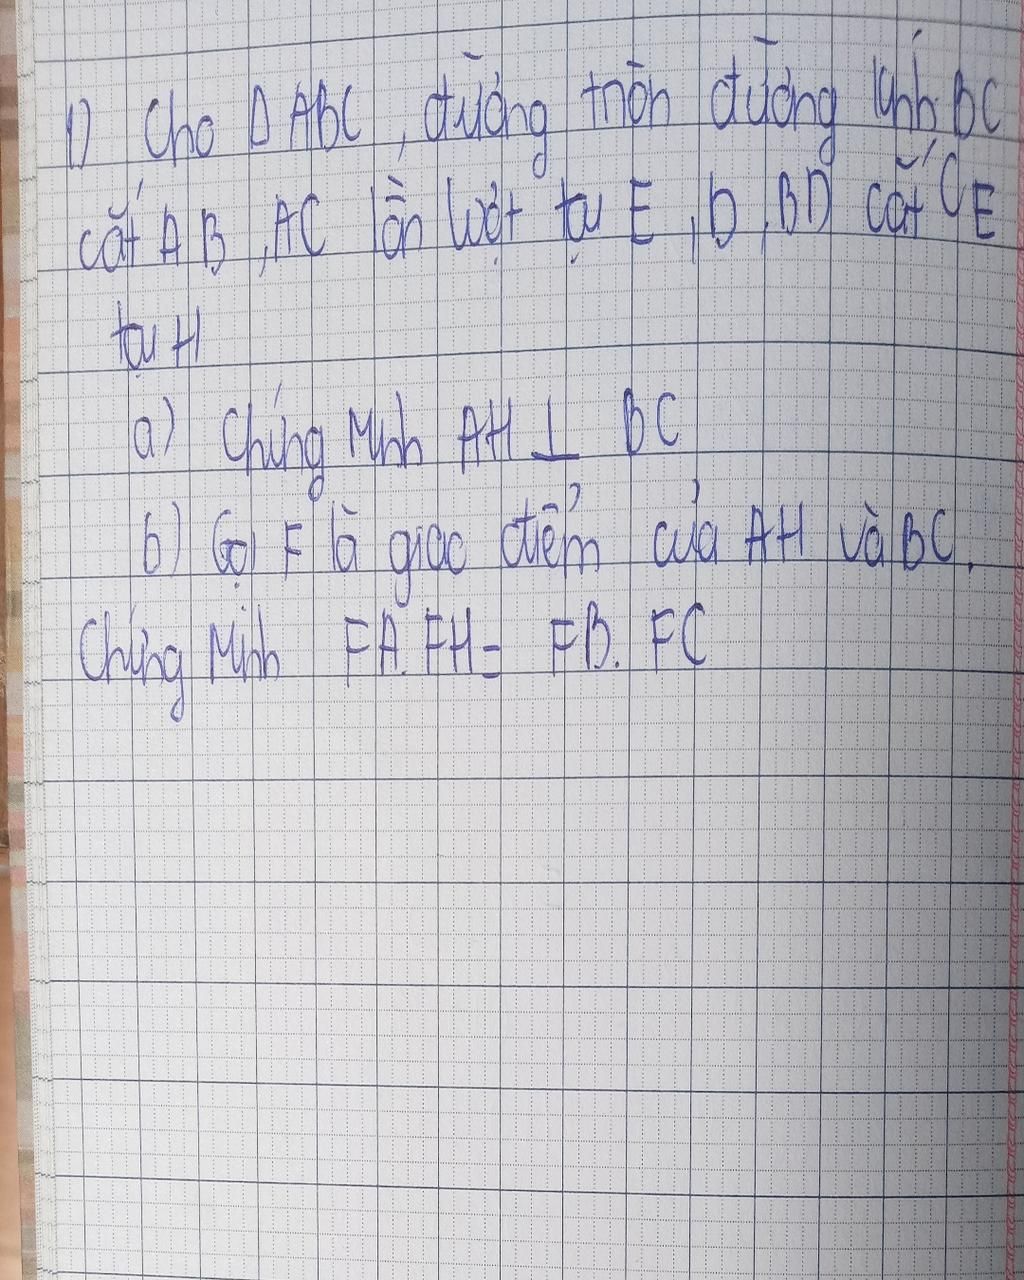 1) Cho Δ ABC, đường tròn đường kính BC
cắt AB, AC lần lượt tại E, D, BD cắt CE
tại H
a) Chứng Minh AH ⊥ BC
b) Gọi F là giao điểm của AH và BC.
Chứng Minh FA. FH = FB. FC